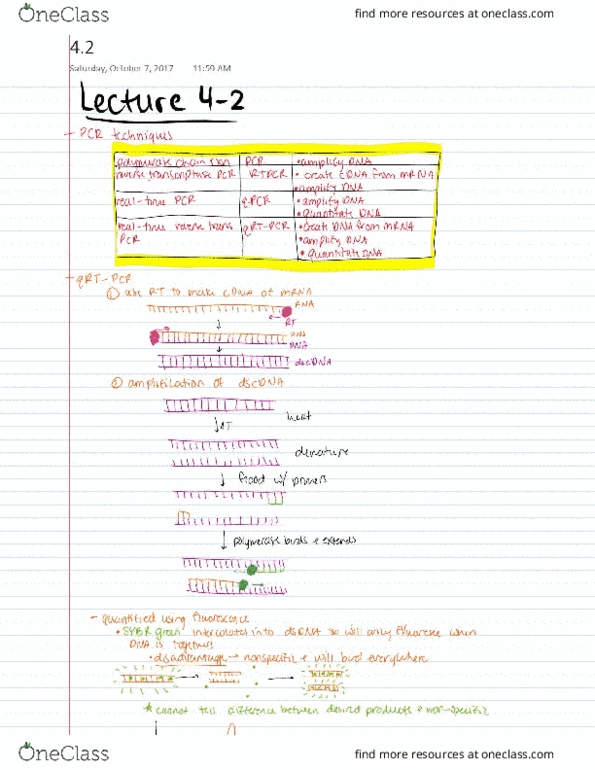 OneClass
find more resources at oneclass.com
4.2
Saturday, October 7, 2017 11:59 AM
Lecture 4-2
- PCR techniques
polymerase chain rxn PCR • amplify DNA
reverse transcriptase PCR RTPCR • create cDNA from mRNA
• amplify DNA
real-time PCR q-PCR • amplify DNA
• quantitate DNA
real-time reverse trans PCR qRT-PCR • create DNA from mRNA
• amplify DNA
• quantitate DNA
- qRT-PCR
① use RT to make cDNA of mRNA
RNA
RT
RNA
DNA
dscDNA
② amplification of dscDNA
heat
↓ΔT
denature
↓ flood w/ primers
↓ polymerase binds + extends
- quantified using fluorescence
• SYBR green intercalates into dsDNA so will only fluoresce when
DNA is together
• disadvantage → nonspecific + will bind everywhere
* cannot tell difference between desired products + non-specific
OneClass
find more resources at oneclass.com